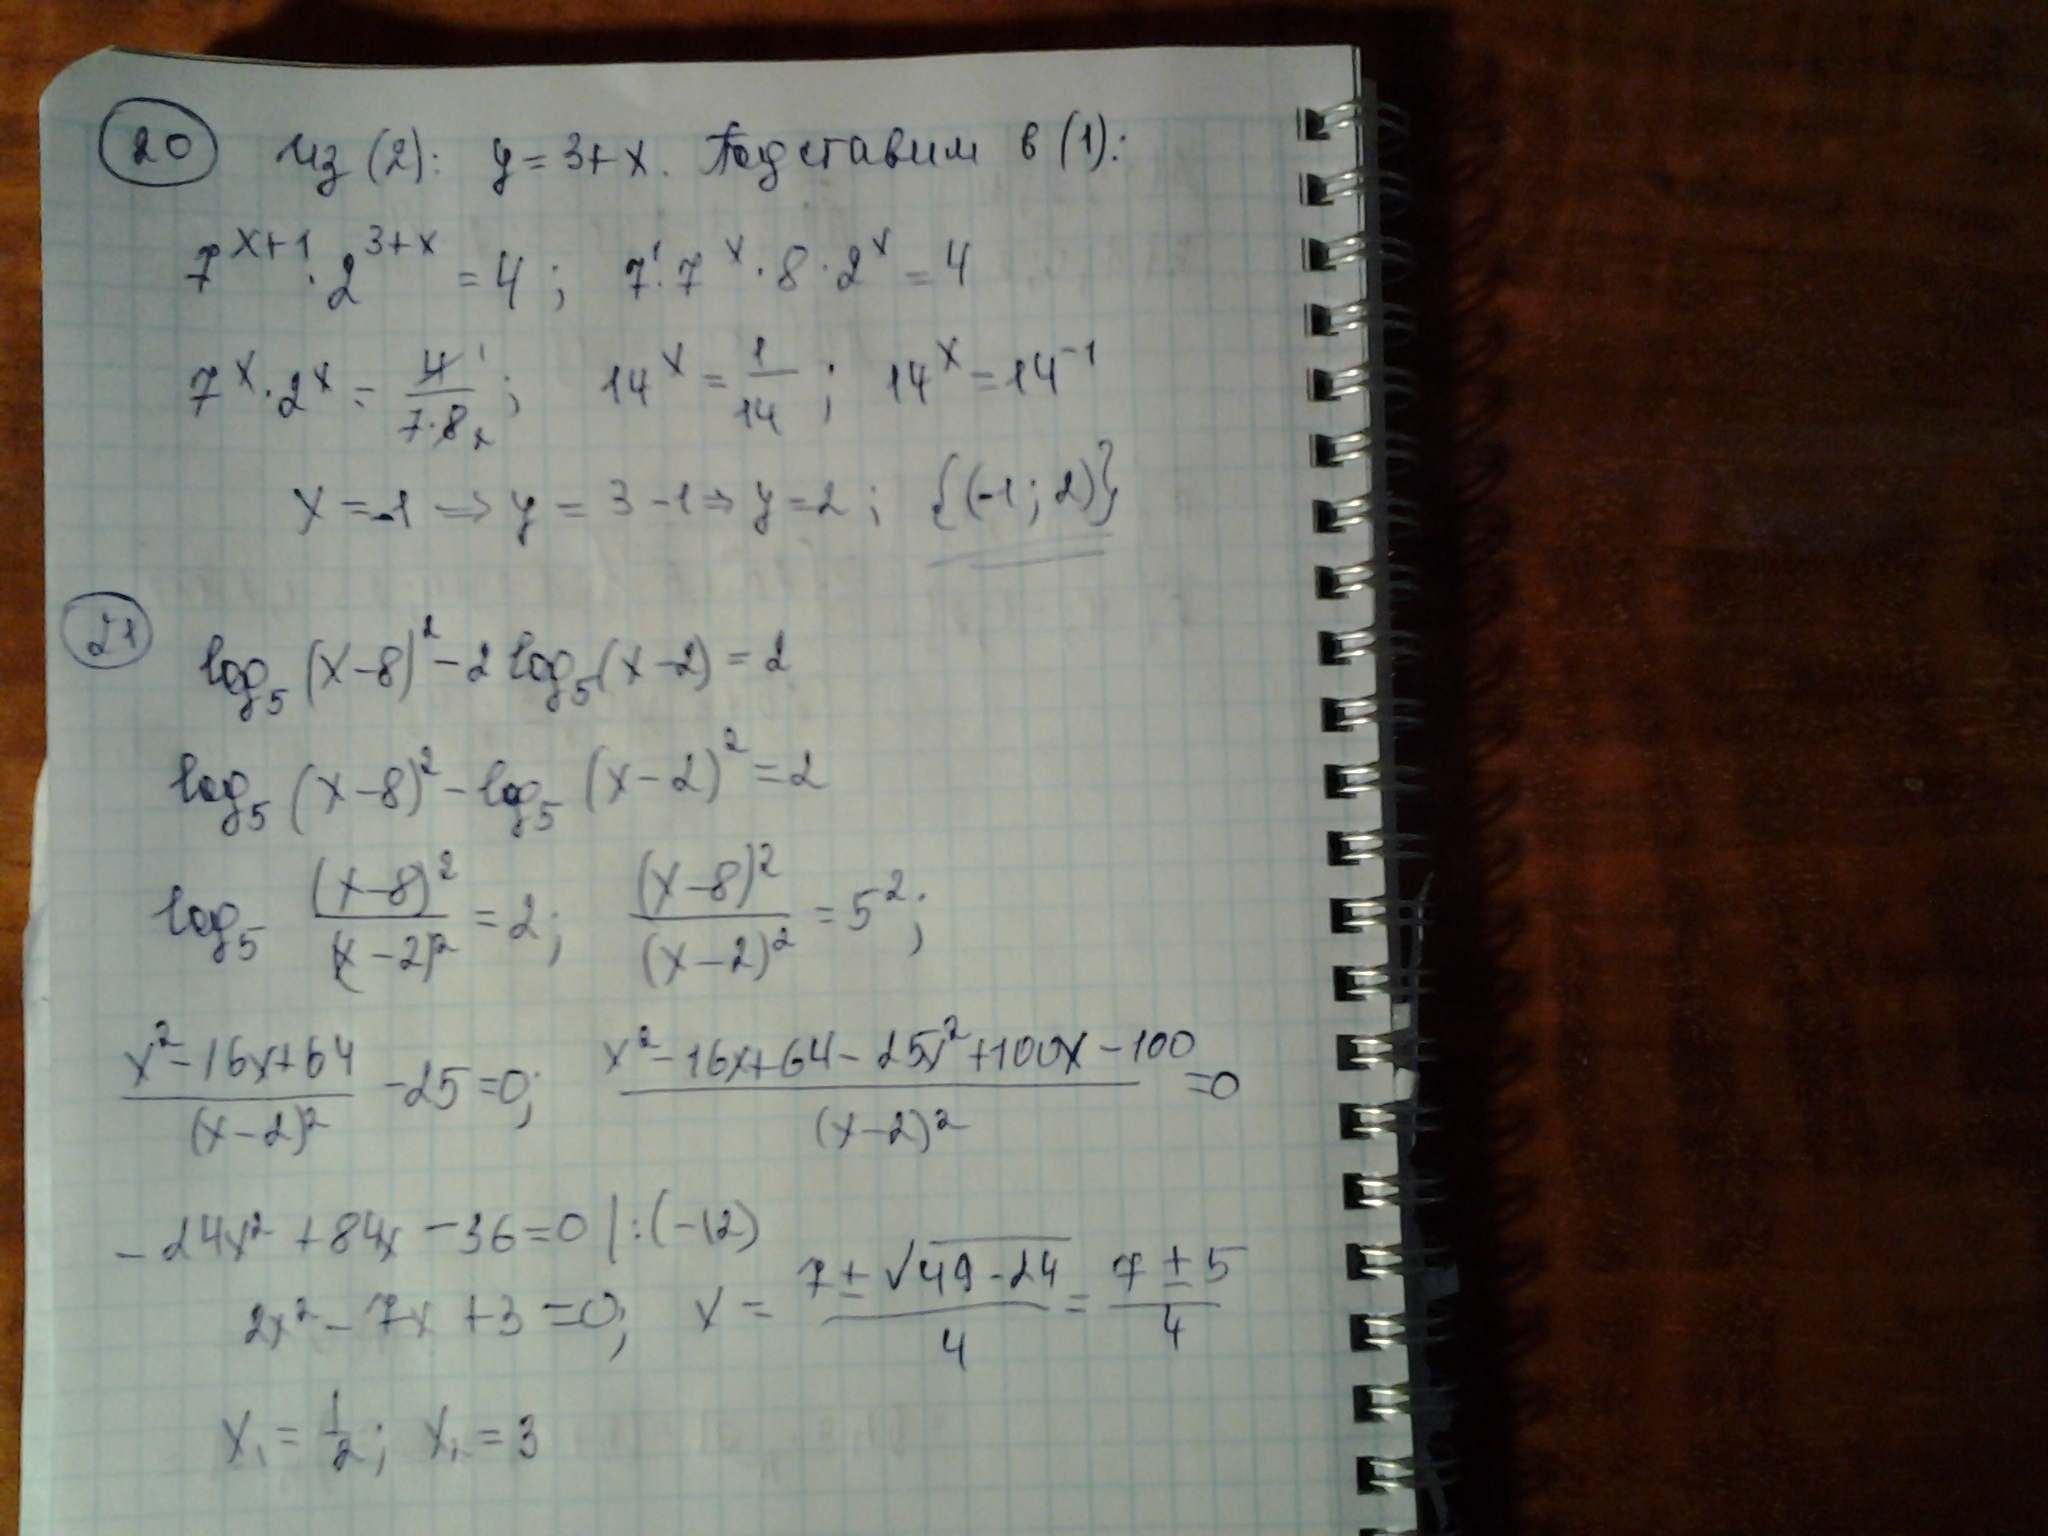 20 Из (2): y = 3+x. Подставим в (1):
7^{x+1} · 2^{3+x} = 4 ; 7^1 · 7^x · 8 · 2^x = 4
7^x · 2^x = 4^1/(7·8_2) ; 14^x = 1/14 ; 14^x = 14^{-1}
x = -1 ⇒ y = 3 - 1 ⇒ y = 2 ; {(-1 ; 2)}
21
log_5 (x-8)^2 - 2 log_5 (x-2) = 2
log_5 (x-8)^2 - log_5 (x-2)^2 = 2
log_5 (x-8)^2/(x-2)^2 = 2 ; (x-8)^2/(x-2)^2 = 5^2 ;
(x^2-16x+64)/(x-2)^2 - 25 = 0 ; (x^2-16x+64-25x^2+100x-100)/(x-2)^2 = 0
-24x^2 + 84x - 36 = 0 |:(-12)
2x^2 - 7x + 3 = 0 ; x = (7 ± √(49-24))/4 = (7 ± 5)/4
x_1 = 1/2 ; x_2 = 3